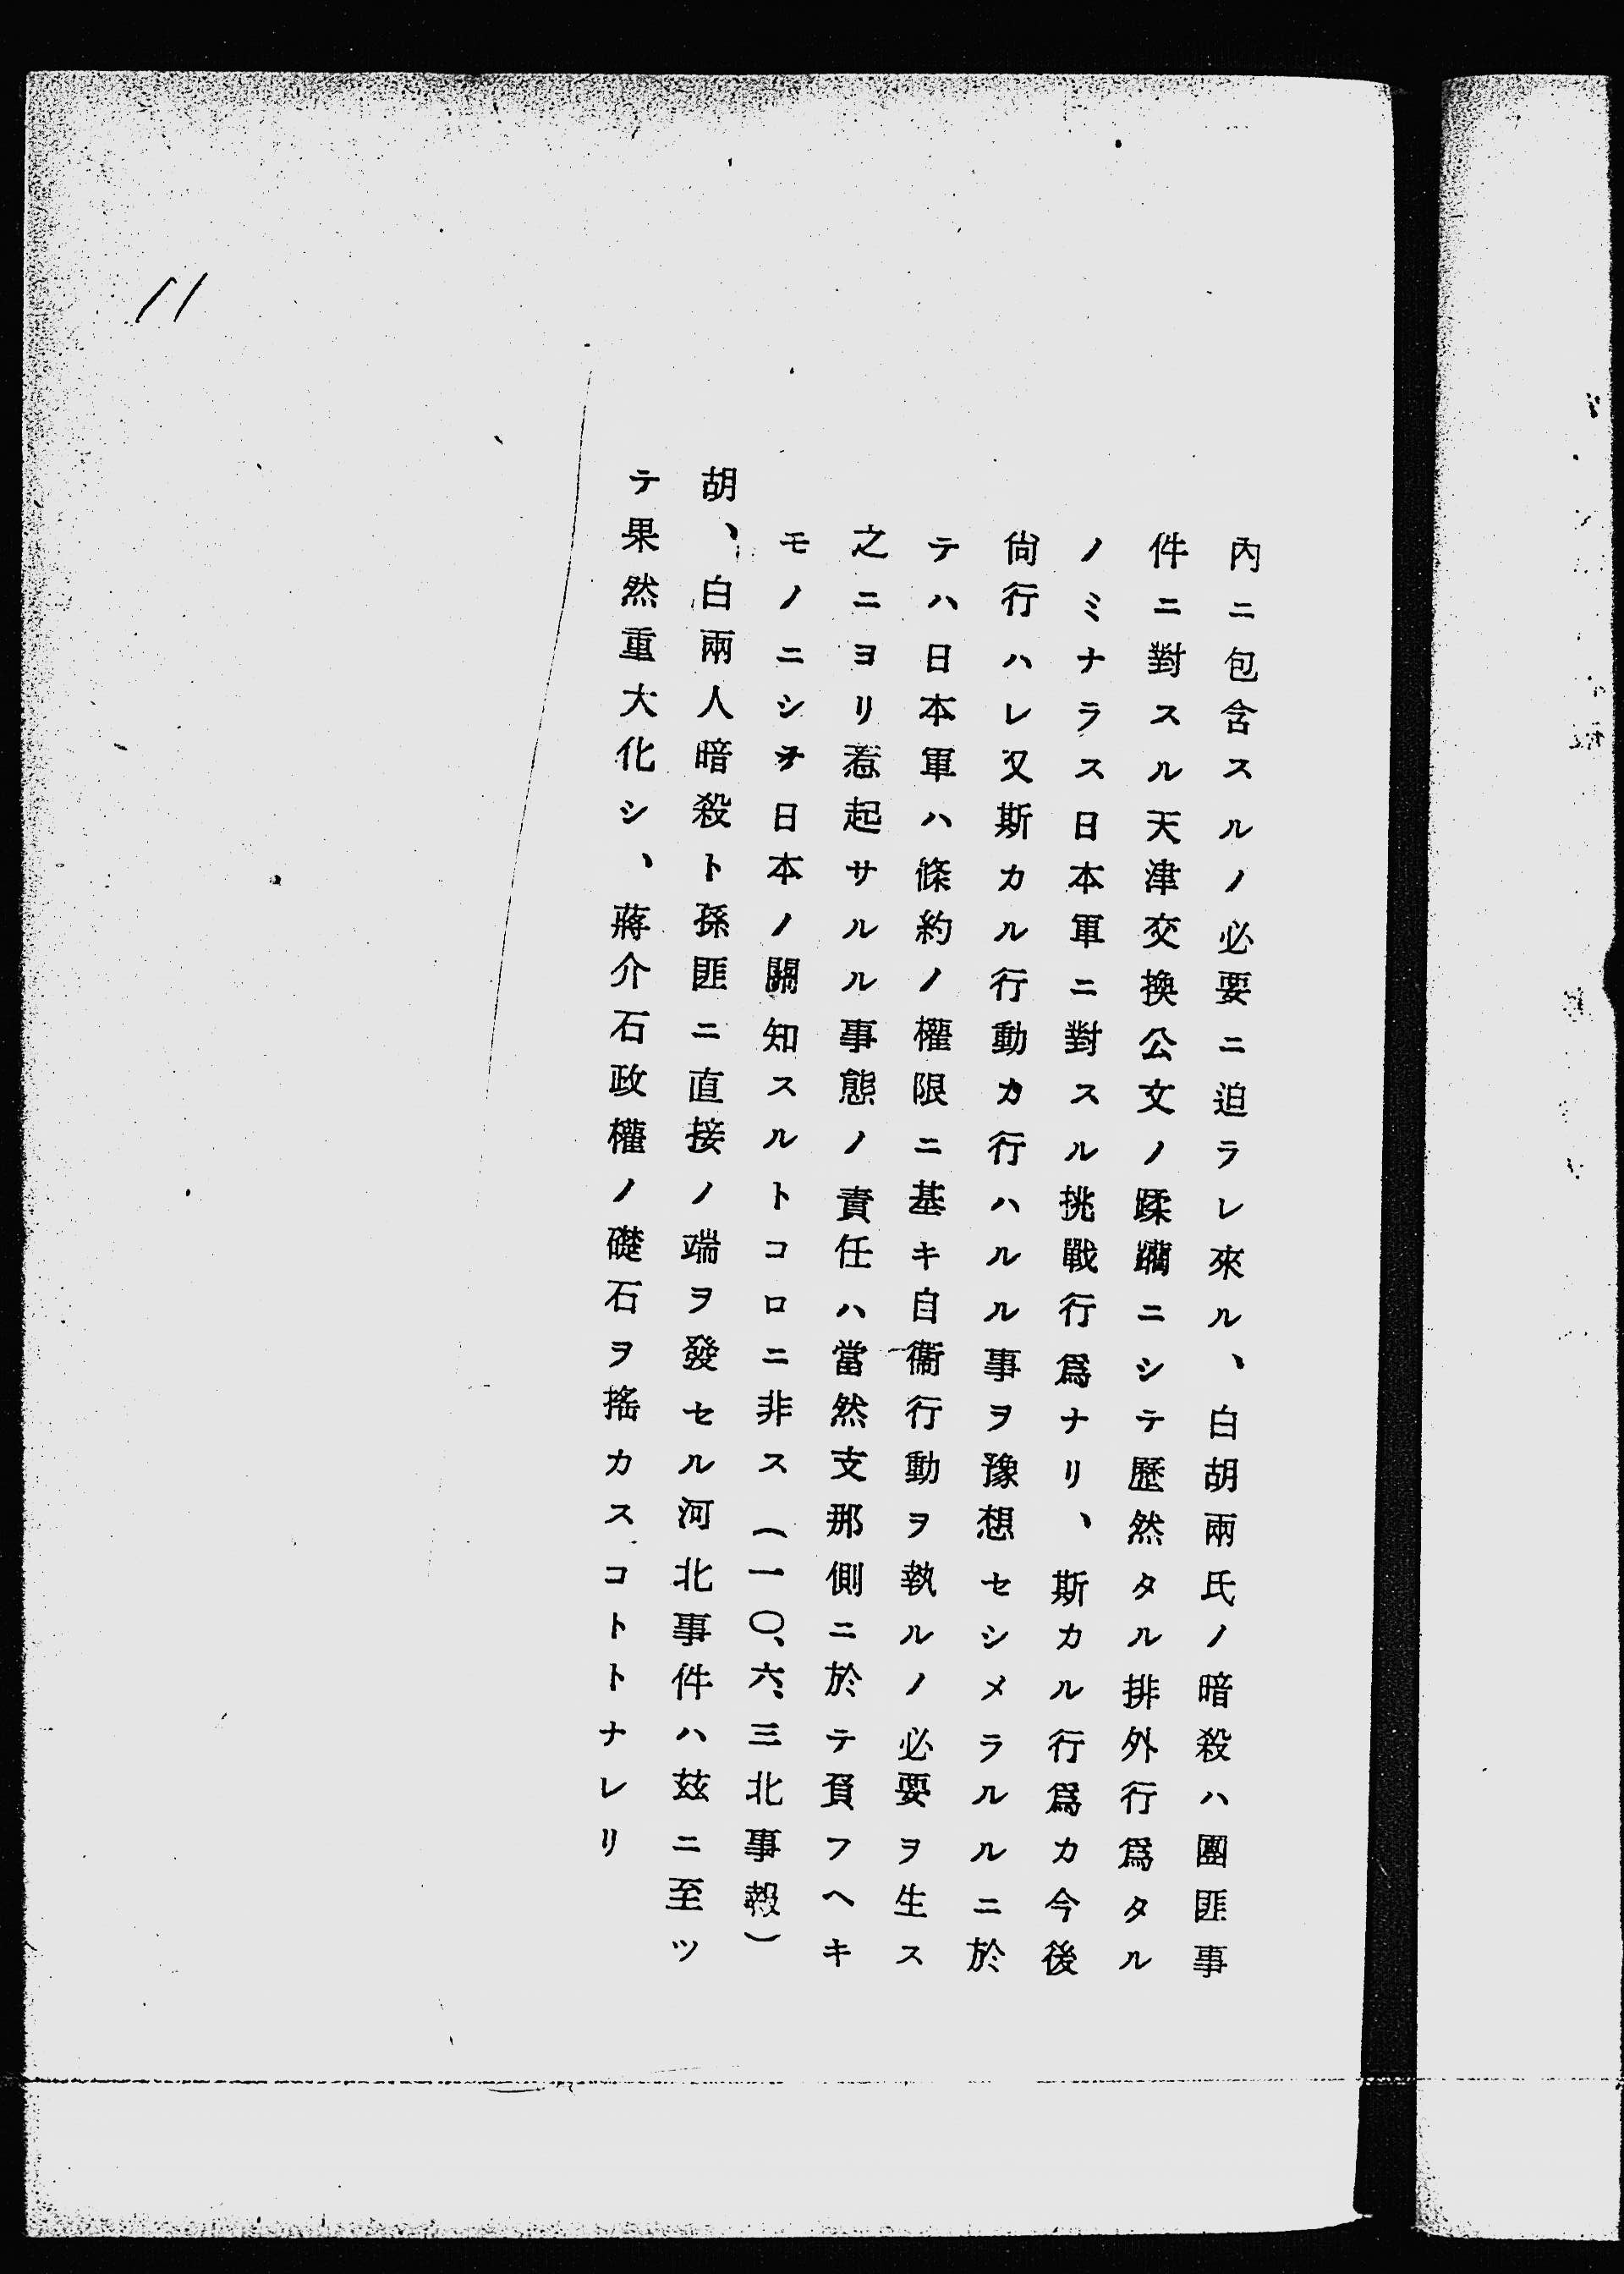 內ニ包含スルノ必要ニ迫ラレ來ル、白胡兩氏ノ暗殺ハ團匪事
件ニ對スル天津交換公文ノ蹂躪ニシテ歷然タル排外行爲タル
ノミナラス日本軍ニ對スル挑戰行爲ナリ、斯カル行爲カ今後
尙行ハレ又斯カル行動カ行ハルル事ヲ豫想セシメラルルニ於
テハ日本軍ハ條約ノ權限ニ基キ自衞行動ヲ執ルノ必要ヲ生ス
之ニヨリ惹起サルル事態ノ責任ハ當然支那側ニ於テ負フヘキ
モノニシテ日本ノ關知スルトコロニ非ス(一〇、六、三北事報)
胡、白兩人暗殺ト孫匪ニ直接ノ端ヲ發セル河北事件ハ玆ニ至ツ
テ果然重大化シ、蔣介石政權ノ礎石ヲ搖カスコトトナレリ
11